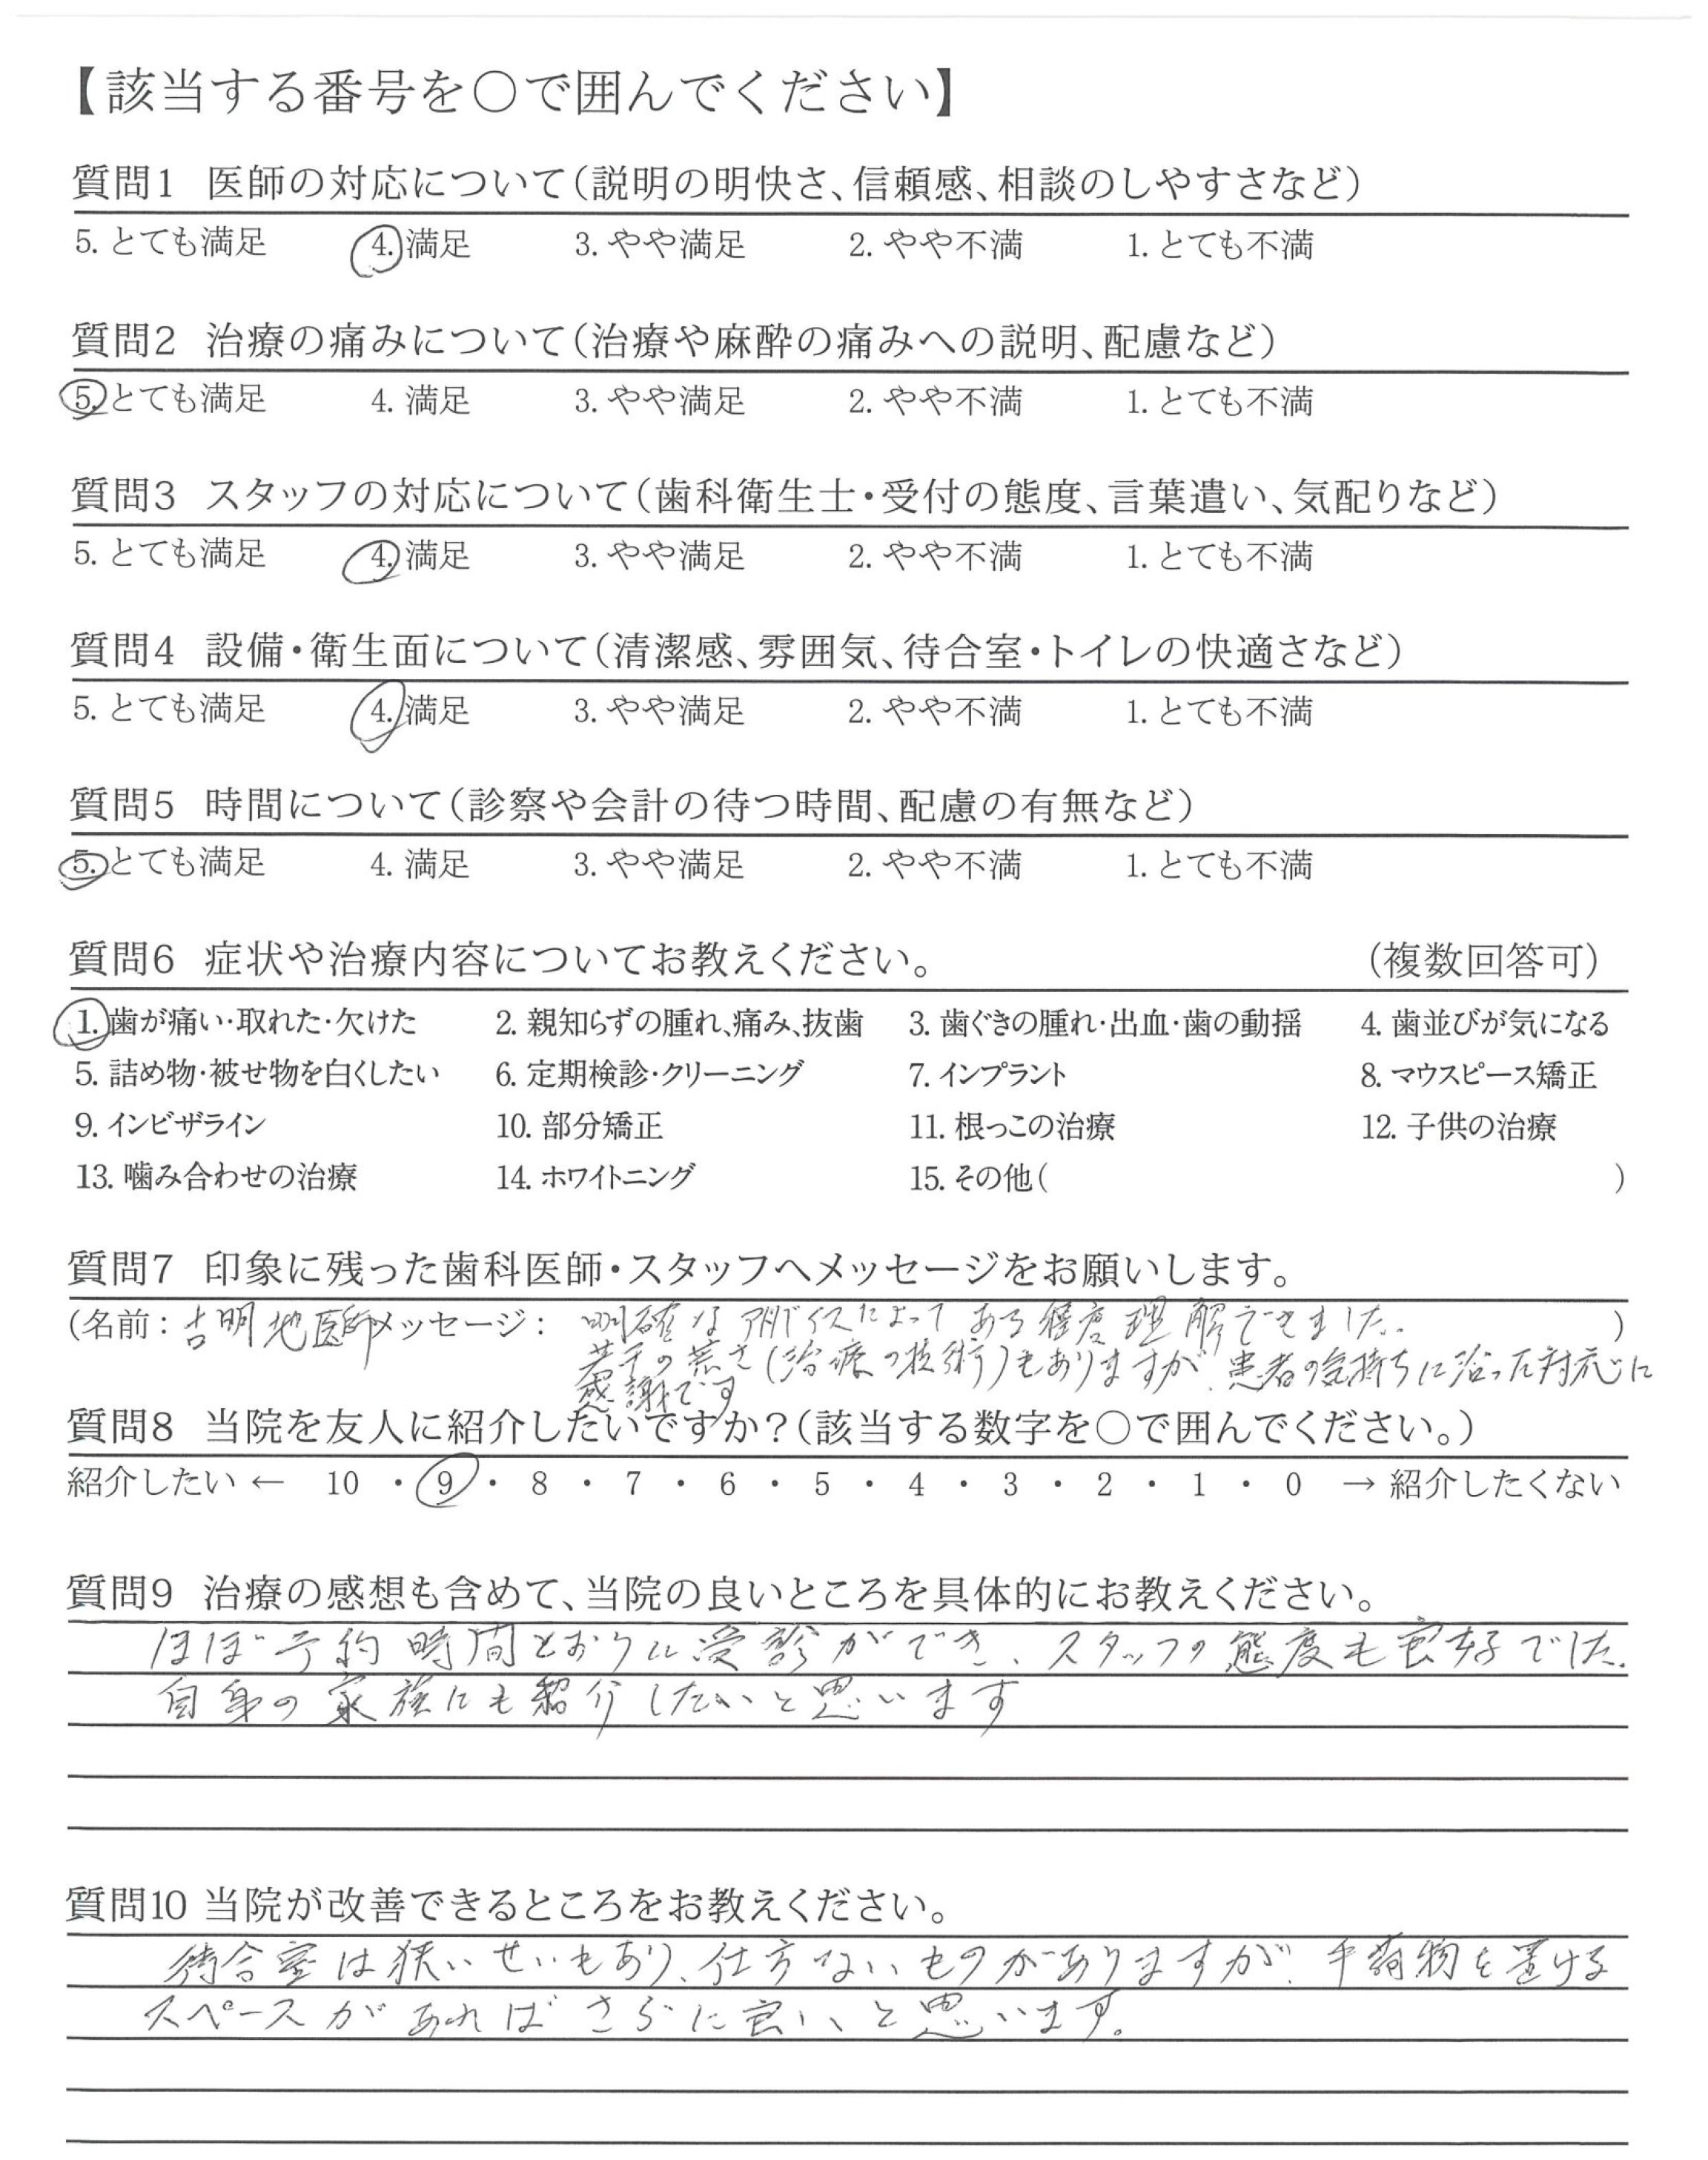 【該当する番号を○で囲んでください】
質問1 医師の対応について(説明の明快さ、信頼感、相談のしやすさなど)
5. とても満足 4. 満足 3. やや満足 2. やや不満 1. とても不満
質問2 治療の痛みについて(治療や麻酔の痛みへの説明、配慮など)
5. とても満足 4. 満足 3. やや満足 2. やや不満 1. とても不満
質問3 スタッフの対応について(歯科衛生士・受付の態度、言葉遣い、気配りなど)
5. とても満足 4. 満足 3. やや満足 2. やや不満 1. とても不満
質問4 設備・衛生面について(清潔感、雰囲気、待合室・トイレの快適さなど)
5. とても満足 4. 満足 3. やや満足 2. やや不満 1. とても不満
質問5 時間について(診察や会計の待つ時間、配慮の有無など)
5. とても満足 4. 満足 3. やや満足 2. やや不満 1. とても不満
質問6 症状や治療内容についてお教えください。 (複数回答可)
1. 歯が痛い・取れた・欠けた 2. 親知らずの腫れ、痛み、抜歯 3. 歯ぐきの腫れ・出血・歯の動揺 4. 歯並びが気になる
5. 詰め物・被せ物を白くしたい 6. 定期検診・クリーニング 7. インプラント 8. マウスピース矯正
9. インビザライン 10. 部分矯正 11. 根っこの治療 12. 子供の治療
13. 噛み合わせの治療 14. ホワイトニング 15. その他( )
質問7 印象に残った歯科医師・スタッフへメッセージをお願いします。
(名前：吉明地医師 メッセージ： 明確なアドバイスによって ある程度理解できました. )
若干の荒さ(治療の技術)もありますが、患者の気持ちに沿った対応に
感謝です
質問8 当院を友人に紹介したいですか？(該当する数字を○で囲んでください。)
紹介したい ← 10 ・ 9 ・ 8 ・ 7 ・ 6 ・ 5 ・ 4 ・ 3 ・ 2 ・ 1 ・ 0 → 紹介したくない
質問9 治療の感想も含めて、当院の良いところを具体的にお教えください。
ほぼ予約時間とおりに受診ができ、スタッフの態度も良好でした.
自身の家族にも紹介したいと思います
質問10 当院が改善できるところをお教えください。
待合室は狭いせいもあり、仕方ないものがありますが、手荷物を置ける
スペースがあればさらに良いと思います。